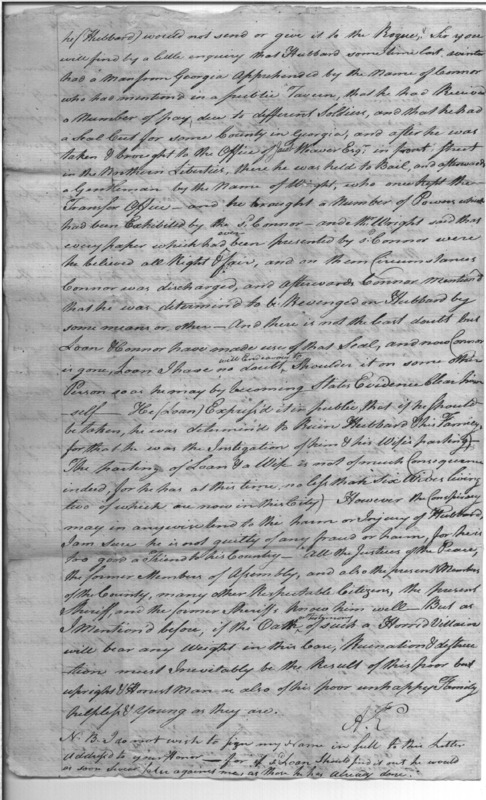 he (Hubbard) would not send or give it to the Rogue, Sir you
will find by a little enquiry that Hubbard some time last winter
had a Man from Georgia Apprehended by the Name of Connor
who had mentiond in a public Tavern, that he had Received
a Number of pay due to different Soldiers, and that he had
a Seal Cut for some County in Georgia, and after he was
taken & brought to the Office of Weaver Esqr. in front Street
in the Northern Liberties, there he was held to Bail, and afterwards
a Gentleman by the Name of Wright, who the
Transfer Office and he brought a Number of Powers which
had been Exhibited by the sd. Connor - and Wright said that
every paper which had ever been presented by sd. Connor were
he believed all Right & fair, and on them Circumstances
Connor was discharged, and afterwards Connor Mentiond
that he was determind to be Revenged on Hubbard by
some means or other - And there is not the least doubt but
Loan & Connor have made use of that Seal, and now Connor
is gone, Loan I have no doubt will Endeavour to Shoulder it on some other
Person so as he may by becoming States Evidence Clear him
self - He (Loan) Express'd it in public, that if he should
be taken, he was determind to Ruin Hubbard & his Family,
for that he was the Instigation of him & his Wifes parting)
The parting of Loan & a Wife is not of much Consequence
indeed, for he has at this time, no less than Six Wives living
two of which are now in this City) However the Conspiracy
may in anywise tend to the harm or Injury of Hubbard,
I am sure he is not guilty of any fraud or harm, for he is
too good a Friend to his Country - All the Justices of the Peace,
the former Members of Assembly, and also the present Members
of the County, many other Respectable Citizens, the present
Sheriff, and the former Sheriff, know him well - But as
I Mention'd before, if the Oath or testimony of such a Horrid Villain
will bear any Weight in this Case, Ruination & destruc
tion must Inevitably be the Result of this poor but
upright & Honest Man as also of his poor unhappy Family
helpless & Young as they are.
A. K
N.B. I do not wish to sign my Name in full to this Letter
address'd to your Honor - for if sd. Loan should find it out he would
as soon swear false against me, as those he has already done.